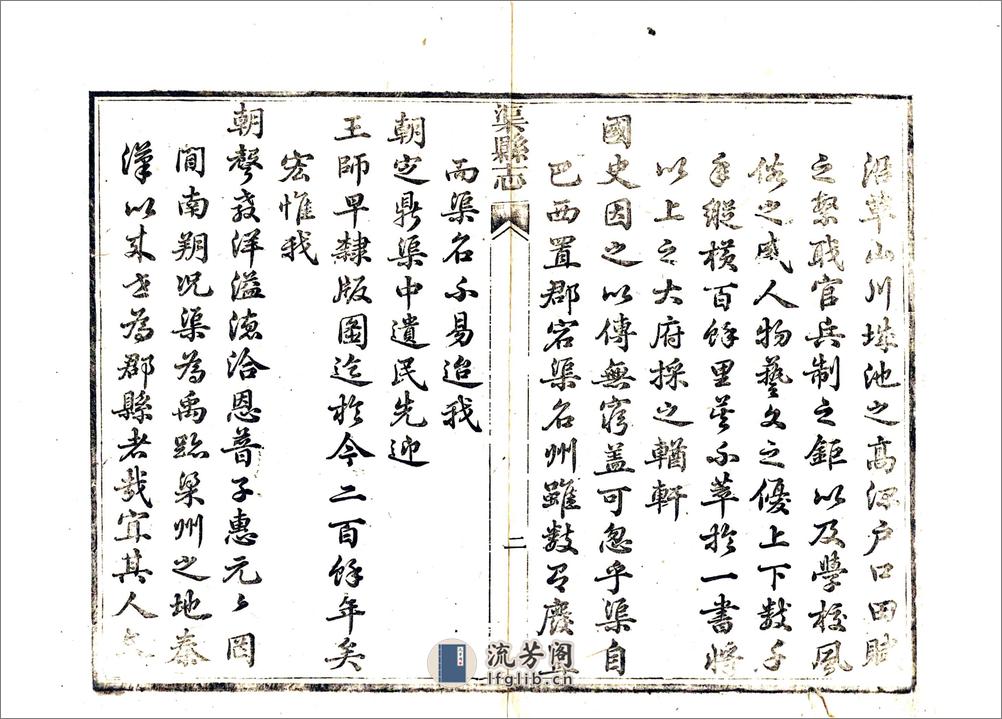 沿革山川城池之高深户口田賦
之繁職官兵制之鉅以及學校風
俗之盛人物藝文之優上下数千
年縱横百餘里莫不萃於一書將
以上之大府採之輶軒
國史因之以傳無窮盖可忽乎渠自
巴西置郡宕渠名州雖数有廢
渠縣志
二
而渠名不易迨我
朝定鼎渠中遺民先迎
王師早隸版圖迄於今二百餘年矣
宏惟我
朝聲教洋溢滂洽恩普子惠元々罔
間南朔况渠為禹跡梁州之地秦
漢以來世為郡縣者哉宜其人文
流芳阁
lfglib.cn